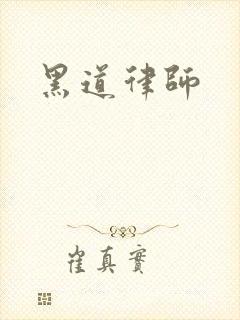 黑道律師
崔真實